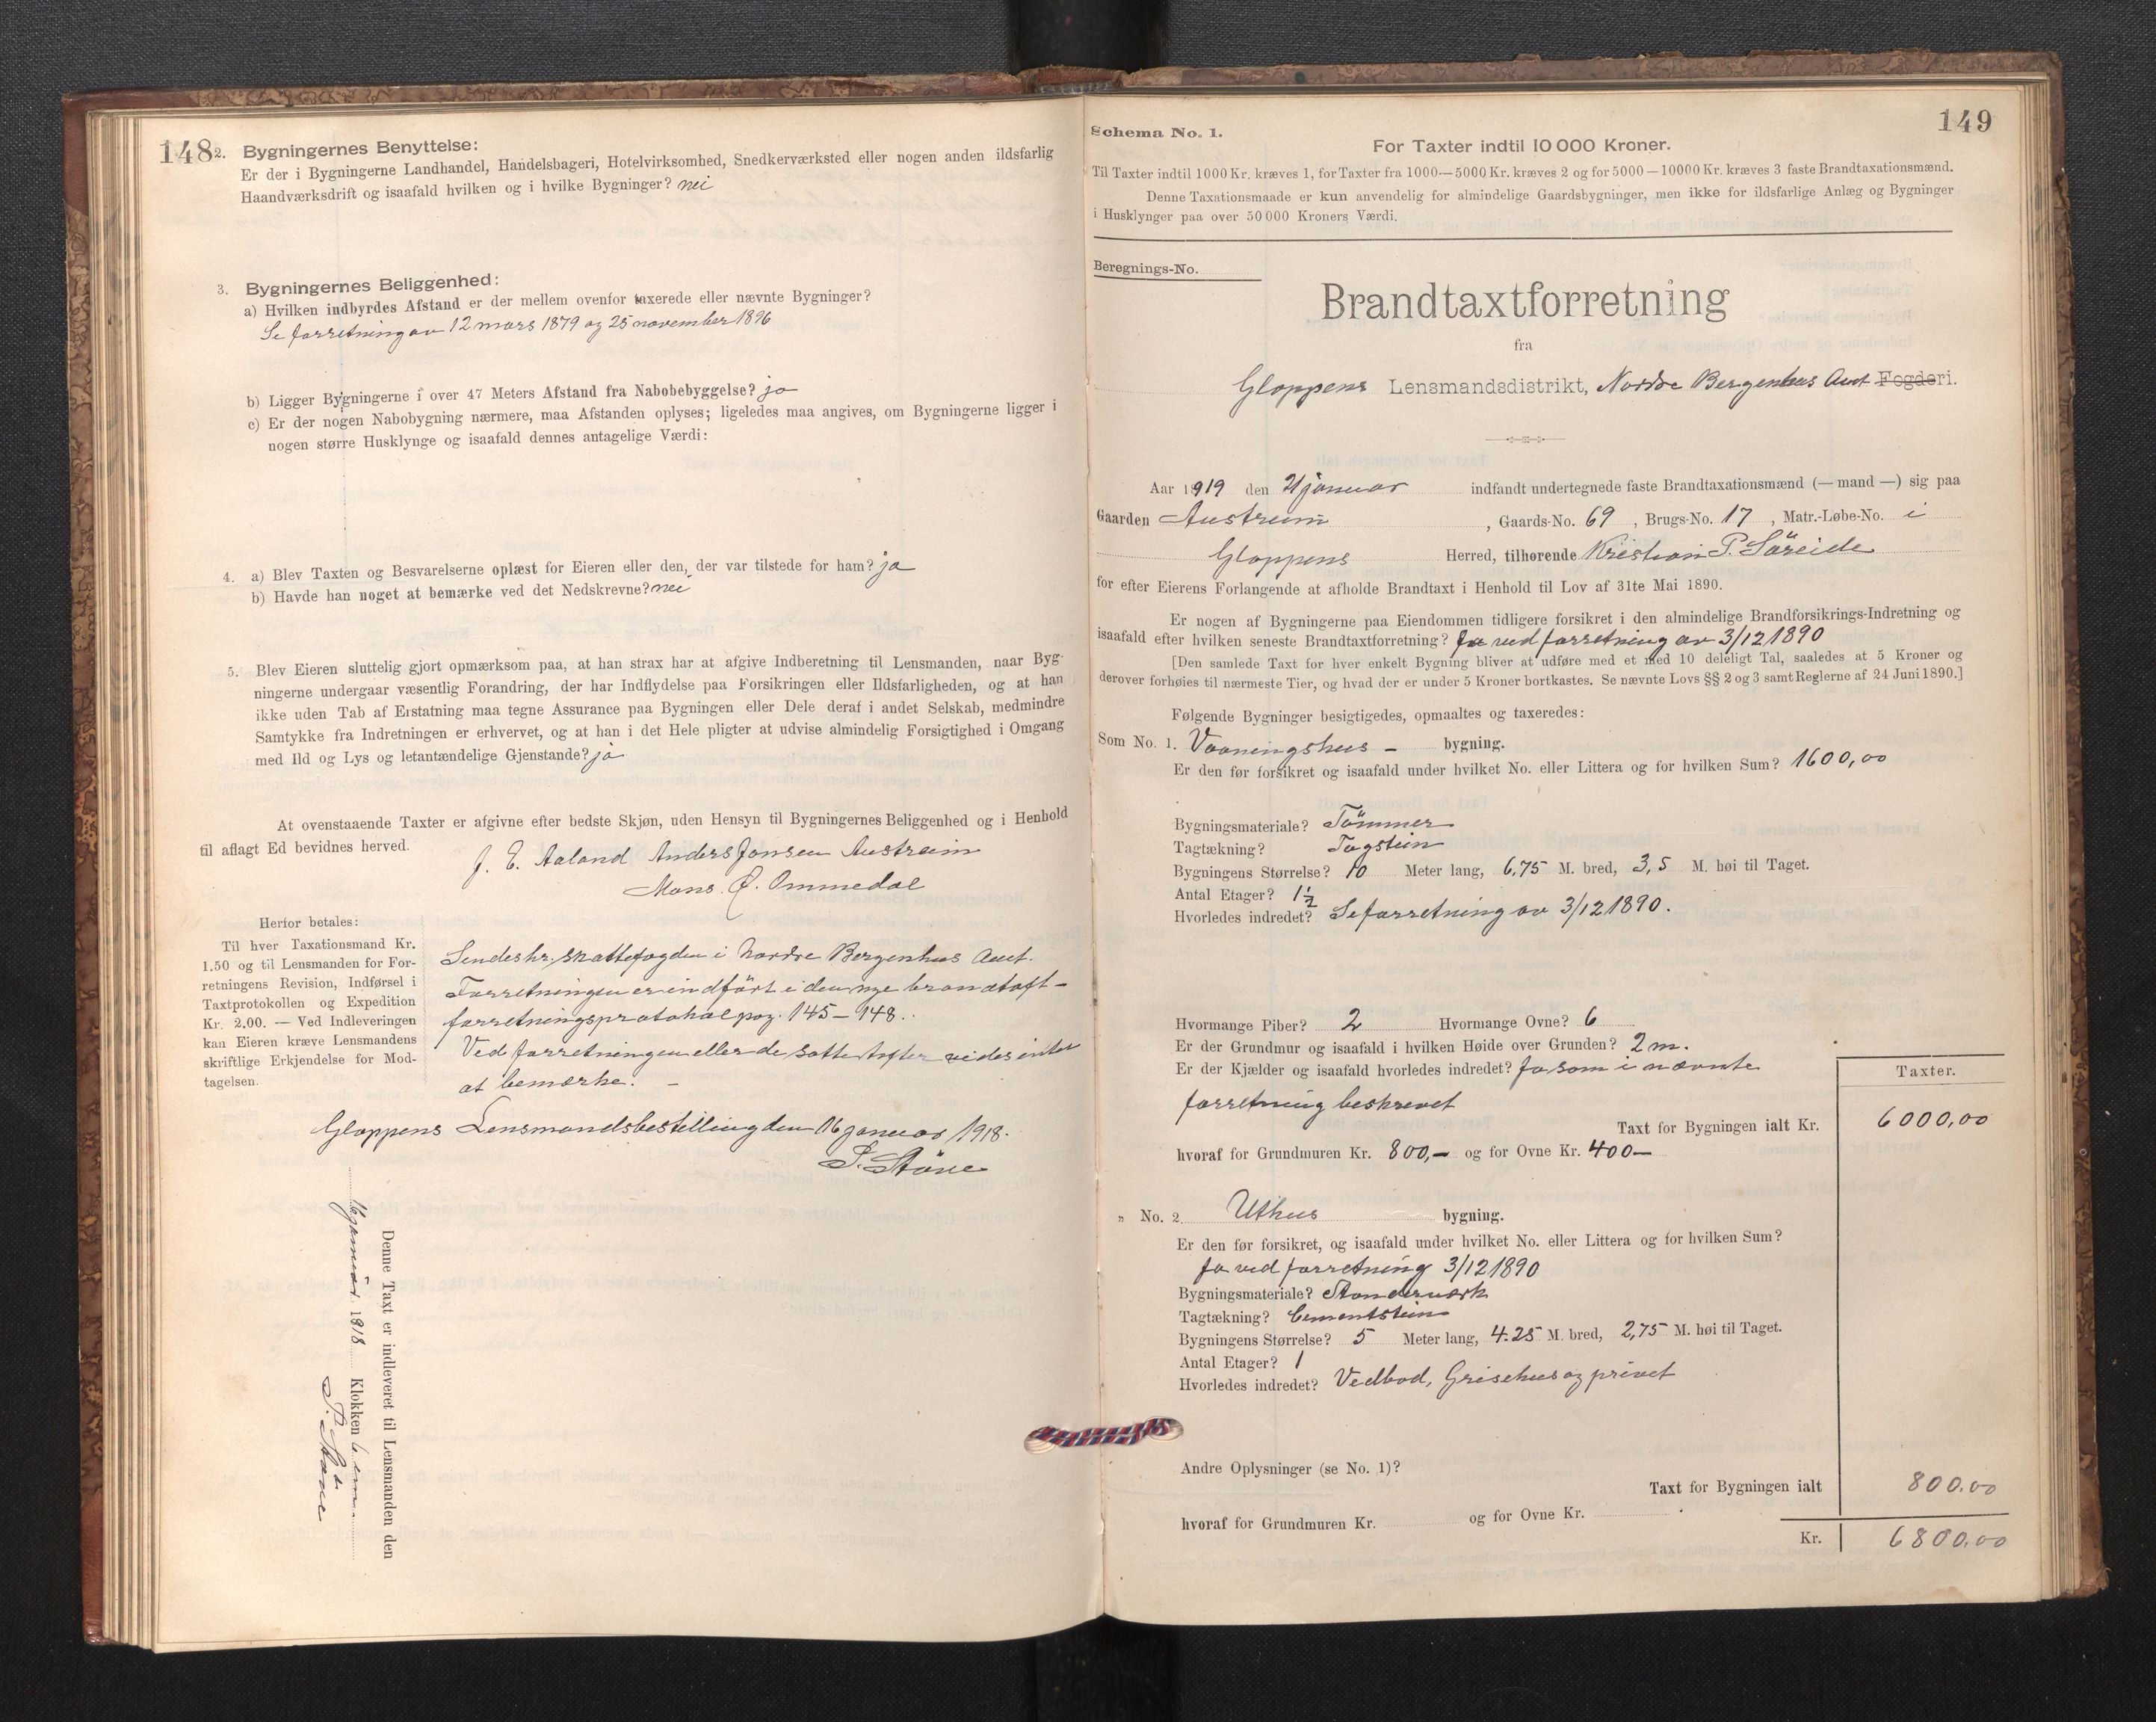 148
2. Bygningernes Benyttelse:
Er der i Bygningerne Landhandel, Handelsbageri, Hotelvirksomhed, Snedkerværksted eller nogen anden ildsfarlig
Haandværksdrift og isaafald hvilken og i hvilke Bygninger? nei
3. Bygningernes Beliggenhed:
a) Hvilken indbyrdes Afstand er der mellem ovenfor taxerede eller nævnte Bygninger?
Se forretning av 12 mars 1879 og 25 november 1896
b) Ligger Bygningerne i over 47 Meters Afstand fra Nabobebyggelse? ja
c) Er der nogen Nabobygning nærmere, maa Afstanden oplyses; ligeledes maa angives, om Bygningerne ligger i
nogen større Husklynge og isaafald dennes antagelige Værdi:
4. a) Blev Taxten og Besvarelserne oplæst for Eieren eller den, der var tilstede for ham? ja
b) Havde han noget at bemærke ved det Nedskrevne? nei
5. Blev Eieren sluttelig gjort opmærksom paa, at han strax har at afgive Indberetning til Lensmanden, naar Byg-
ningerne undergaar væsentlig Forandring, der har Indflydelse paa Forsikringen eller Ildsfarligheden, og at han
ikke uden Tab af Erstatning maa tegne Assurance paa Bygningen eller Dele deraf i andet Selskab, medmindre
Samtykke fra Indretningen er erhvervet, og at han i det Hele pligter at udvise almindelig Forsigtighed i Omgang
med Ild og Lys og letantændelige Gjenstande? ja
At ovenstaaende Taxter er afgivne efter bedste Skjøn, uden Hensyn til Bygningernes Beliggenhed og i Henhold
til aflagt Ed bevidnes herved.
J. E. Aaland Anders Jonsen Austreim
Mons. O. Ommedal
Herfor betales:
Til hver Taxationsmand Kr.
1.50 og til Lensmanden for For-
retningens Revision, Indførsel i
Taxtprotokollen og Expedition
Kr. 2.00. — Ved Indleveringen
kan Eieren kræve Lensmandens
skriftlige Erkjendelse for Mod-
tagelsen.
Sendes hr. skattefogden i Nordre Bergenhus Amt.
Forretningen er indført i den nye brandtaxt-
forretningsprotokol pag. 145-148.
Ved forretningen eller de satte takster vides intet
at bemerke. -
Gloppens Lensmandsbestilling den 16 januar 1918.
S. Støve
Denne Taxt er indleveret til Lensmanden den
16 januar 1918 Klokken 6 em.
S. Støve
149
Schema No. 1.
For Taxter indtil 10 000 Kroner.
Til Taxter indtil 1000 Kr. kræves 1, for Taxter fra 1000—5000 Kr. kræves 2 og for 5000—10000 Kr. kræves 3 faste Brandtaxationsmænd.
Denne Taxationsmaade er kun anvendelig for almindelige Gaardsbygninger, men ikke for ildsfarlige Anlæg og Bygninger
i Husklynger paa over 50 000 Kroners Værdi.
Beregnings-No.
Brandtaxtforretning
fra
Gloppens Lensmandsdistrikt, Nordre Bergenhus Amt Fogderi.
Aar 1919 den 21 januar indfandt undertegnede faste Brandtaxationsmænd (— mand —) sig paa
Gaarden Austreim, Gaards-No. 69, Brugs-No. 17, Matr.-Løbe-No. i
Gloppens Herred, tilhørende Kristian P. Søreide
for efter Eierens Forlangende at afholde Brandtaxt i Henhold til Lov af 31te Mai 1890.
Er nogen af Bygningerne paa Eiendommen tidligere forsikret i den almindelige Brandforsikrings-Indretning og
isaafald efter hvilken seneste Brandtaxtforretning? Ja ved forretning av 3/12 1890
[Den samlede Taxt for hver enkelt Bygning bliver at udføre med et med 10 deleligt Tal, saaledes at 5 Kroner og
derover forhøies til nærmeste Tier, og hvad der er under 5 Kroner bortkastes. Se nævnte Lovs §§ 2 og 3 samt Reglerne af 24 Juni 1890.]
Følgende Bygninger besigtigedes, opmaaltes og taxeredes:
Som No. 1. Vaaningshus - bygning.
Er den før forsikret og isaafald under hvilket No. eller Littera og for hvilken Sum? 1600,00
Bygningsmateriale? Tømmer
Tagtækning? Tagstein
Bygningens Størrelse? 10 Meter lang, 6,75 M. bred, 3,5 M. høi til Taget.
Antal Etager? 1½
Hvorledes indredet? Se forretning av 3/12 1890.
Hvormange Piber? 2 Hvormange Ovne? 6
Er der Grundmur og isaafald i hvilken Høide over Grunden? 2 m.
Er der Kjælder og isaafald hvorledes indredet? Ja som i nævnte
forretning beskrevet
Taxter.
Taxt for Bygningen ialt Kr. 6000,00
hvoraf for Grundmuren Kr. 800,— og for Ovne Kr. 400—
„ No. 2. Uthus bygning.
Er den før forsikret, og isaafald under hvilket No. eller Littera og for hvilken Sum?
Ja ved forretning 3/12 1890
Bygningsmateriale? Standerverk
Tagtækning? Cementstein
Bygningens Størrelse? 5 Meter lang, 4.25 M. bred, 2,75 M. høi til Taget.
Antal Etager? 1
Hvorledes indredet? Vedbod, Grisehus og privet
Andre Oplysninger (se No. 1)?
Taxt for Bygningen ialt 800.00
hvoraf for Grundmuren Kr. og for Ovne Kr.
Kr. 6800.00